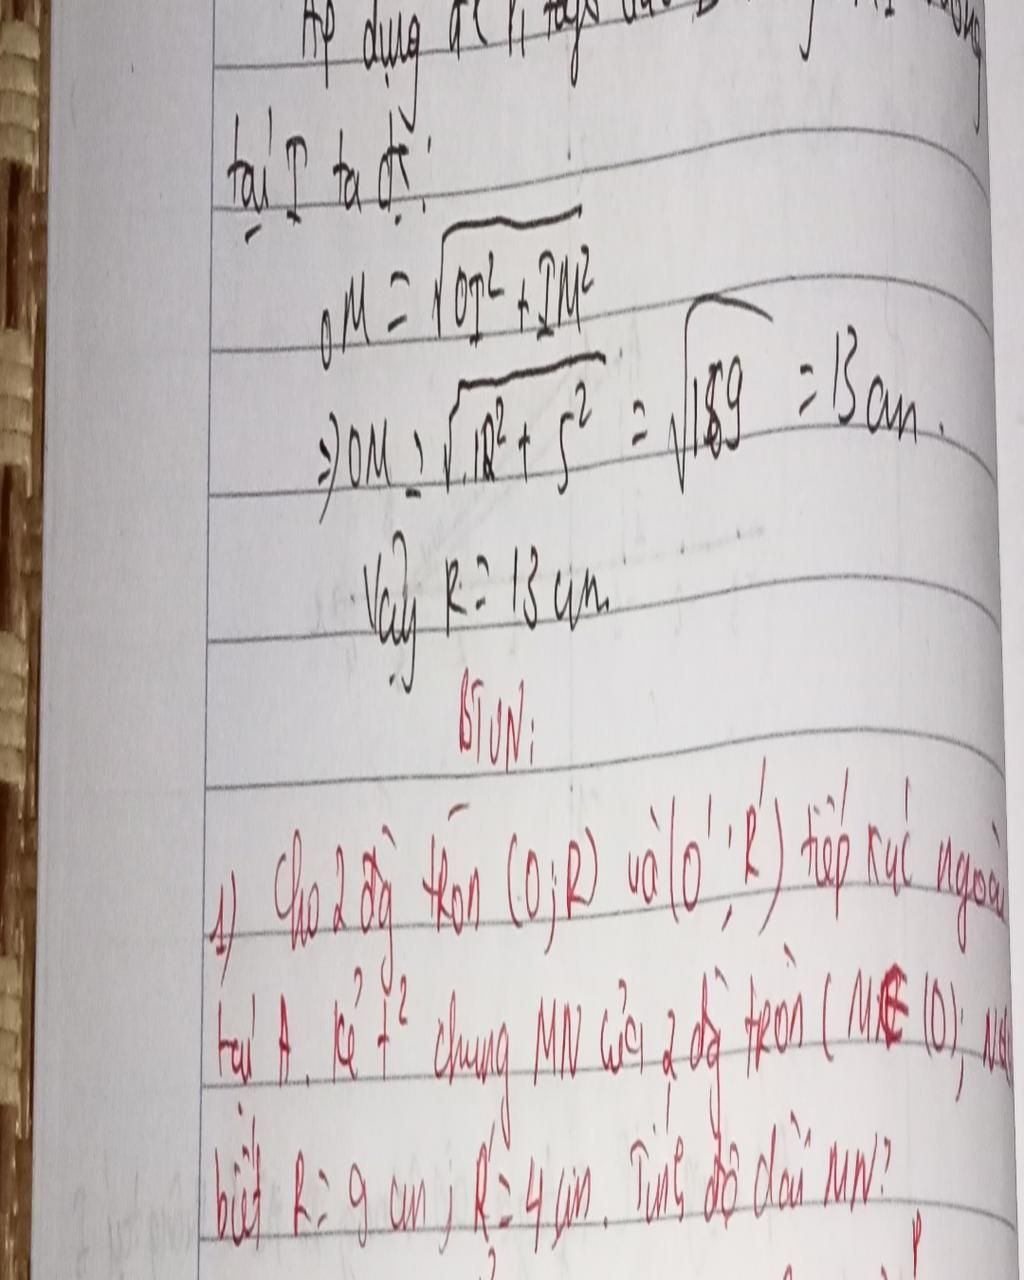 Áp dụng đ/l
tại I ta có:
OM = √OI² + IM²
=> OM = √12² + 5² = √169 = 13 cm.
Vậy R = 13 cm
BTVN:
1) Cho 2 đg tròn (O; R) và (O'; R') tiếp xúc ngoài
tại A. Kẻ t² chung MN của 2 đg tròn (M ∈ (O);
biết R = 9 cm; R' = 4 cm. Tính độ dài MN?